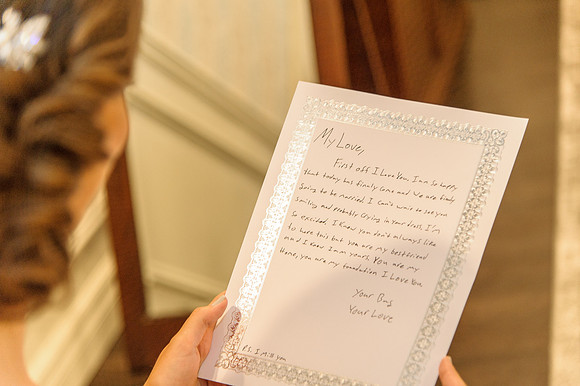 My Love,
First off I Love You, I am so happy
that today has finally come and we are finally
going to be married. I can't wait to see you
smiling and probably crying in your dress. I'm
so excited. I know you don't always like
to hear this but you are my bestfriend
and I know I am yours. You are my
Home, you are my foundation I Love You.
Your
Your Love
P.S. I Miss You